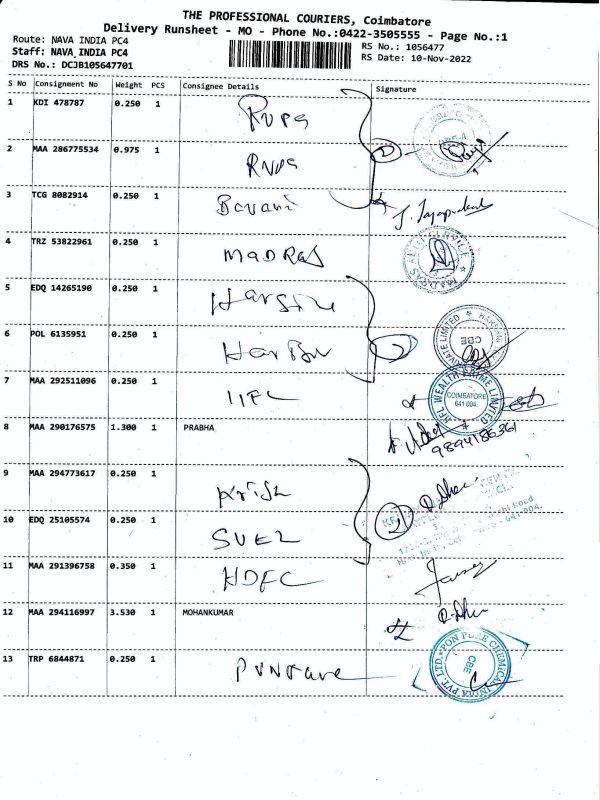 THE PROFESSIONAL COURIERS, Coimbatore
Delivery Runsheet - MO - Phone No.:0422-3505555 - Page No.:1
Route: NAVA INDIA PC4
Staff: NAVA INDIA PC4
DRS No.: DCJB105647701
RS No.: 1056477
RS Date: 10-Nov-2022
S No Consignment No Weight PCS Consignee Details Signature
1 KDI 478787 0.250 1 Rupa
2 MAA 286775534 0.975 1 Rupa
3 TCG 8082914 0.250 1 Bavani
J. Jayaprakash
4 TRZ 53822961 0.250 1 MADRAS
MADRAS AUTO SERVICE
5 EDQ 14265190 0.250 1
6 POL 6135951 0.250 1
CBE
7 MAA 292511096 0.250 1 IIFL
WEALTH PRIME LIMITED
COIMBATORE
641 004.
8 MAA 290176575 1.300 1 PRABHA
9894186361
9 MAA 294773617 0.250 1 Krish
10 EDQ 25105574 0.250 1 SUEZ
11 MAA 291396758 0.350 1 HDFC
12 MAA 294116997 3.530 1 MOHANKUMAR
13 TRP 6844871 0.250 1
PON PURE CHEMICAL INDIA PVT. LTD.
CBE